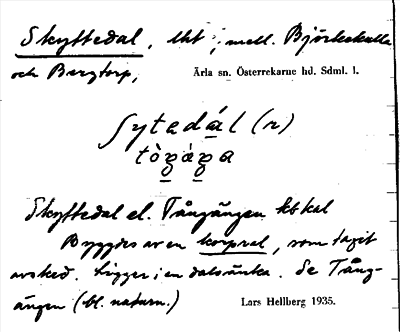 Skyttedal, lht; mell. Björkekulla
och Bergtorp,
Ärla sn. Österrekarne hd. Sdml. l.
ʃytedál (n)
Skyttedal el. Tångängen kbkal
Byggdes av en korpral, som tagit
avsked. Ligger i en dalsänka. Se Tång-
ängen (bl. naturn.)
Lars Hellberg 1935.